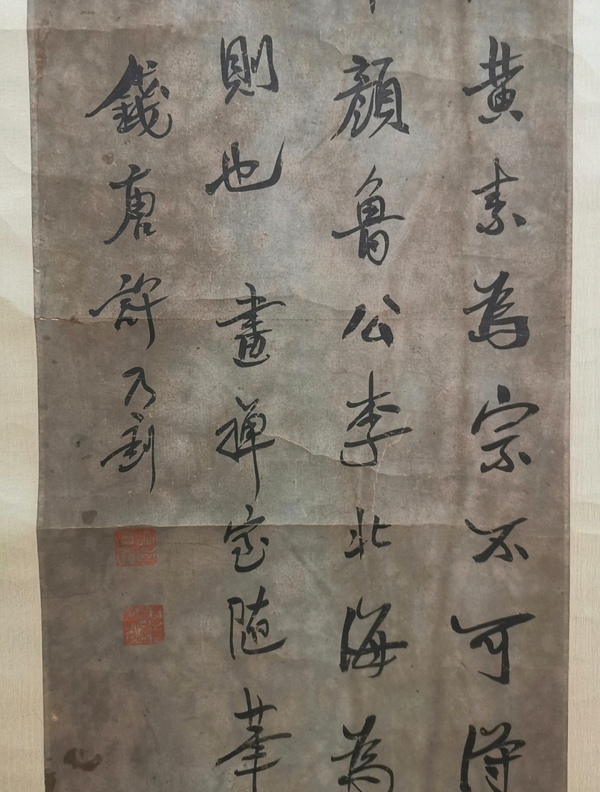 黄素為宗不可得
顔魯公李北海為
則也 畫禪室随筆
錢唐許乃劉